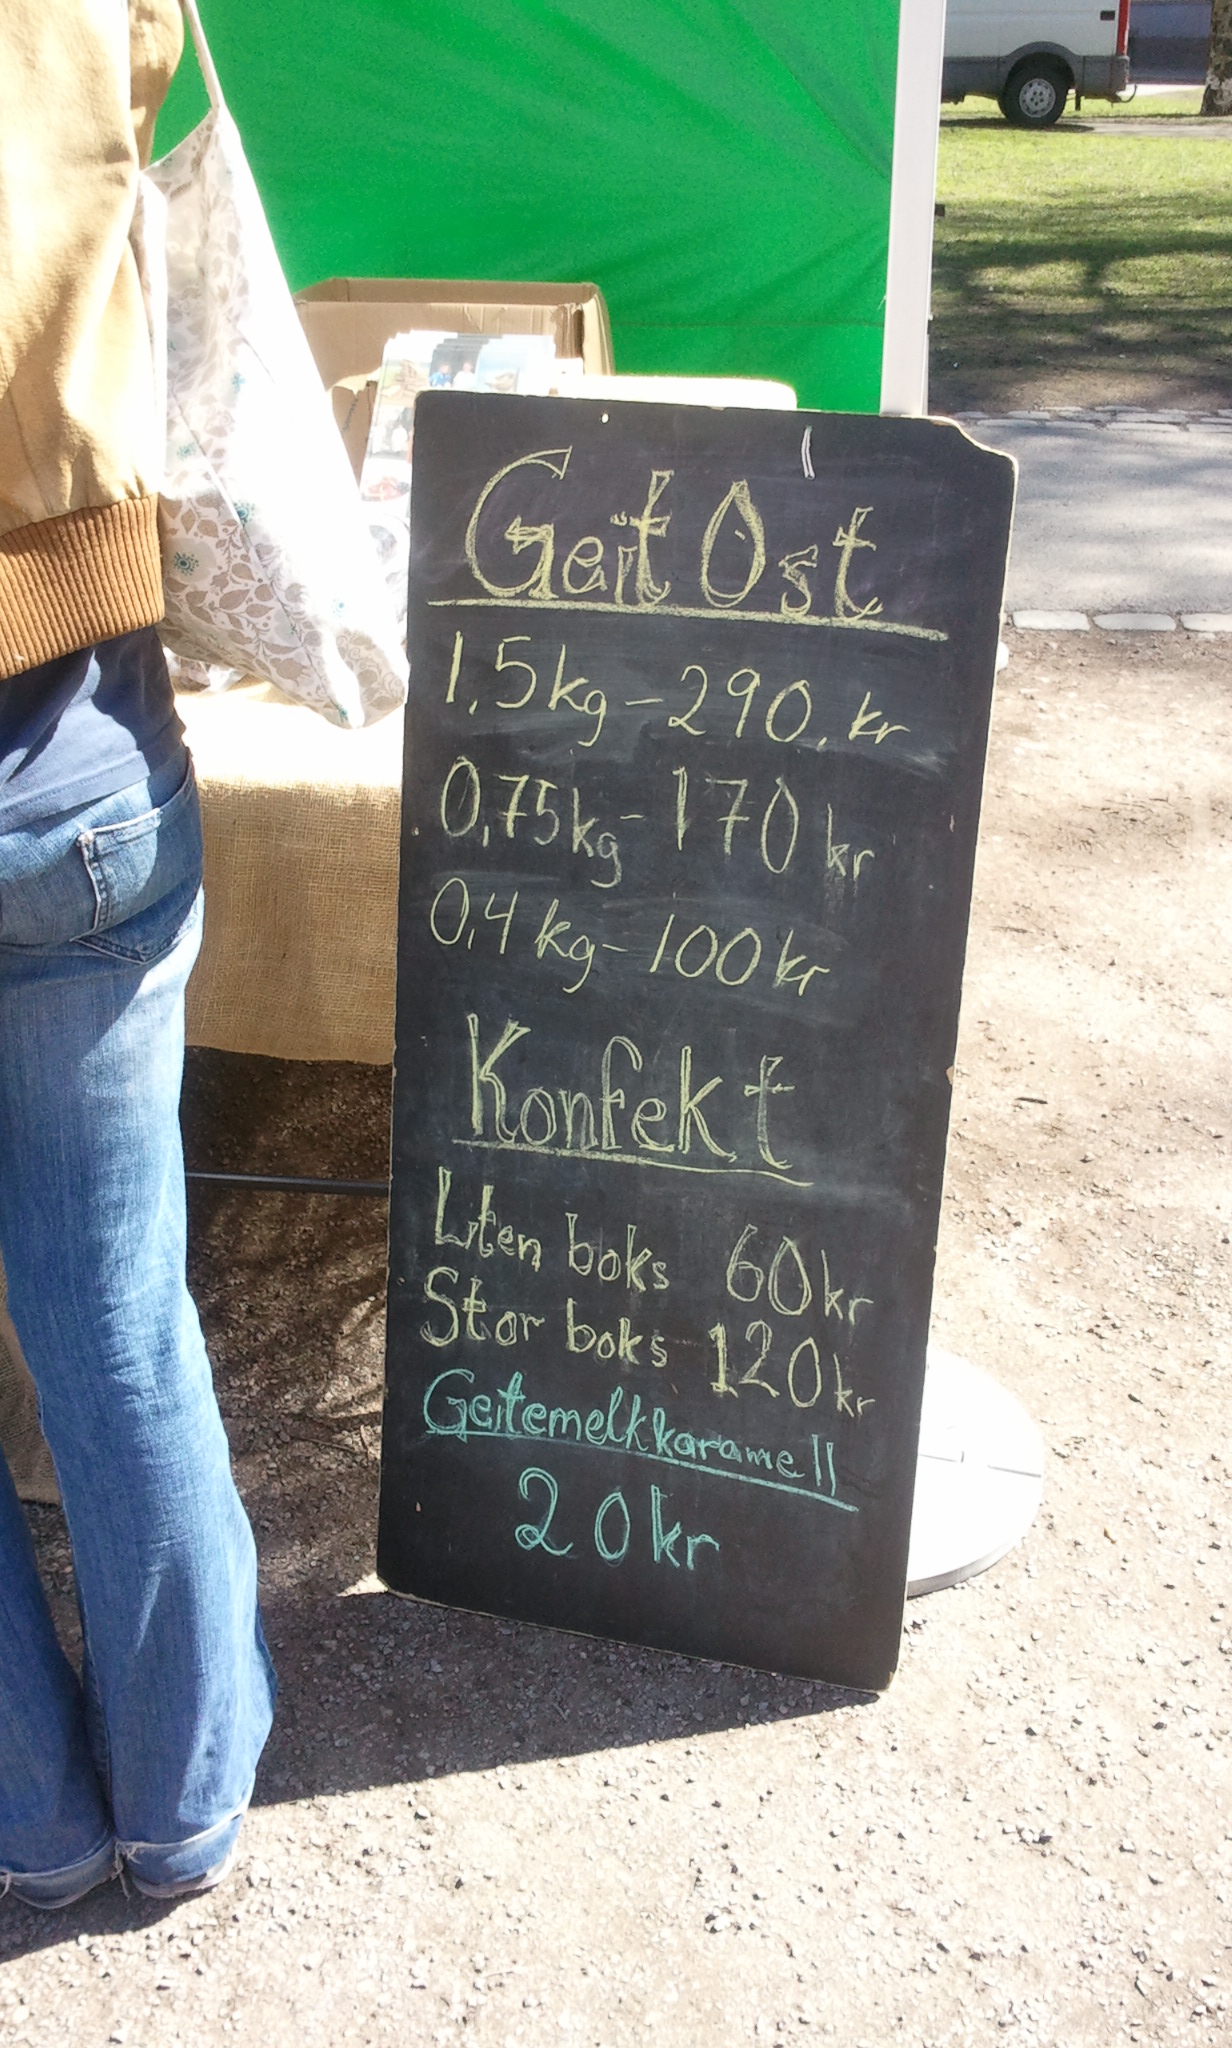 Geit Ost
1,5kg - 290. kr
0,75kg - 170 kr
0,4 kg - 100 kr
Konfekt
Liten boks 60kr
Stor boks 120kr
Geitemelkkaramell
20kr